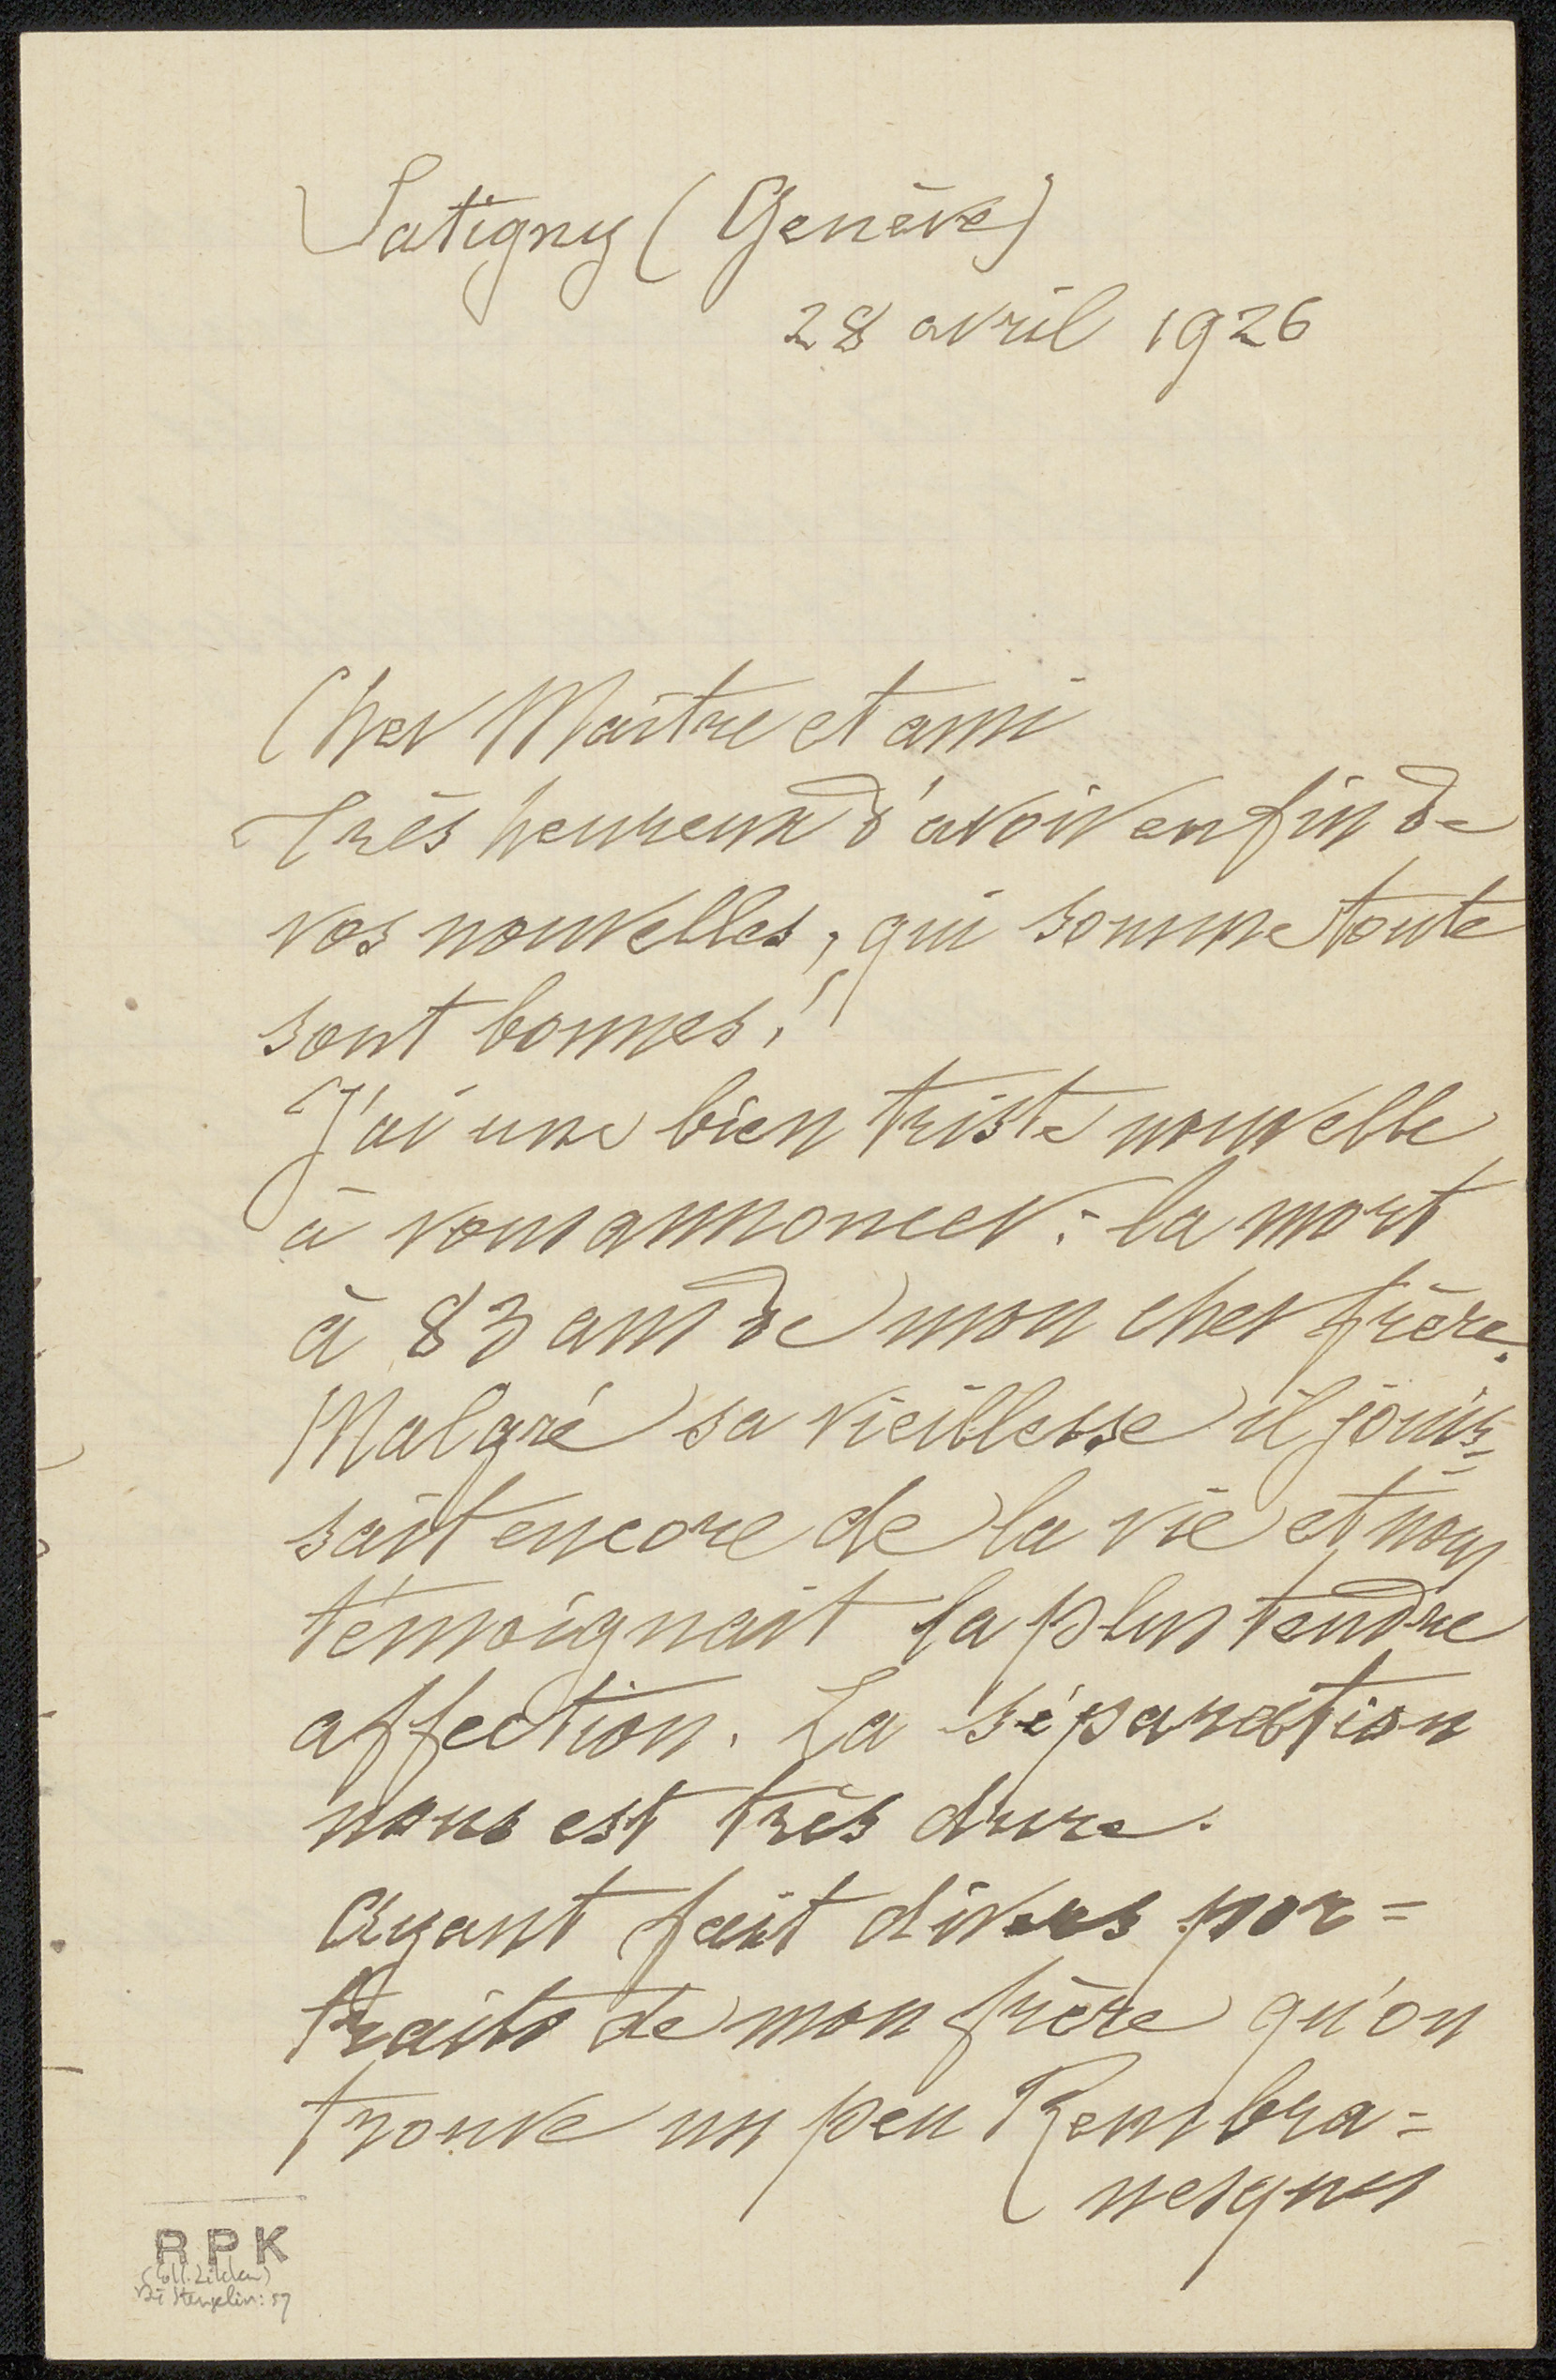 Satigny (Genève)
28 avril 1926
Cher Maître et ami
Très heureux d'avoir enfin de
vos nouvelles, qui somme toute
sont bonnes!
J'ai une bien triste nouvelle
à vous annoncer: la mort
à 83 ans de mon cher frère.
Malgré sa vieillesse il jouis=
sait encore de la vie et nous
témoignait la plus tendre
affection. La séparation
nous est très dure.
Ayant fait divers por=
traits de mon frère qu'on
trouve un peu Rembra=
nesques
RPK
(Coll. Zilcken)
Di Hengelin: 57